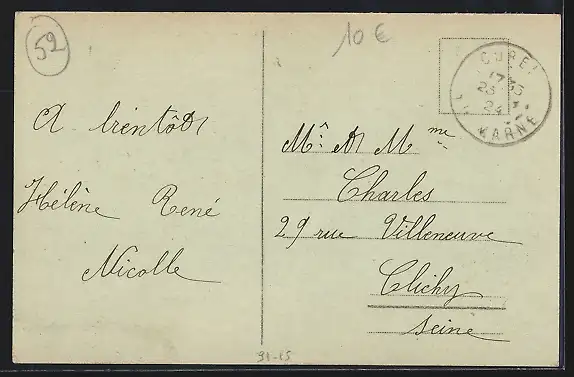 52
10 €
CUREL
17 35
23
24
Hte MARNE
A bientôt
Hélène René
Nicolle
Mr. et Mme
Charles
29 rue Villeneuve
Clichy
Seine
91-15